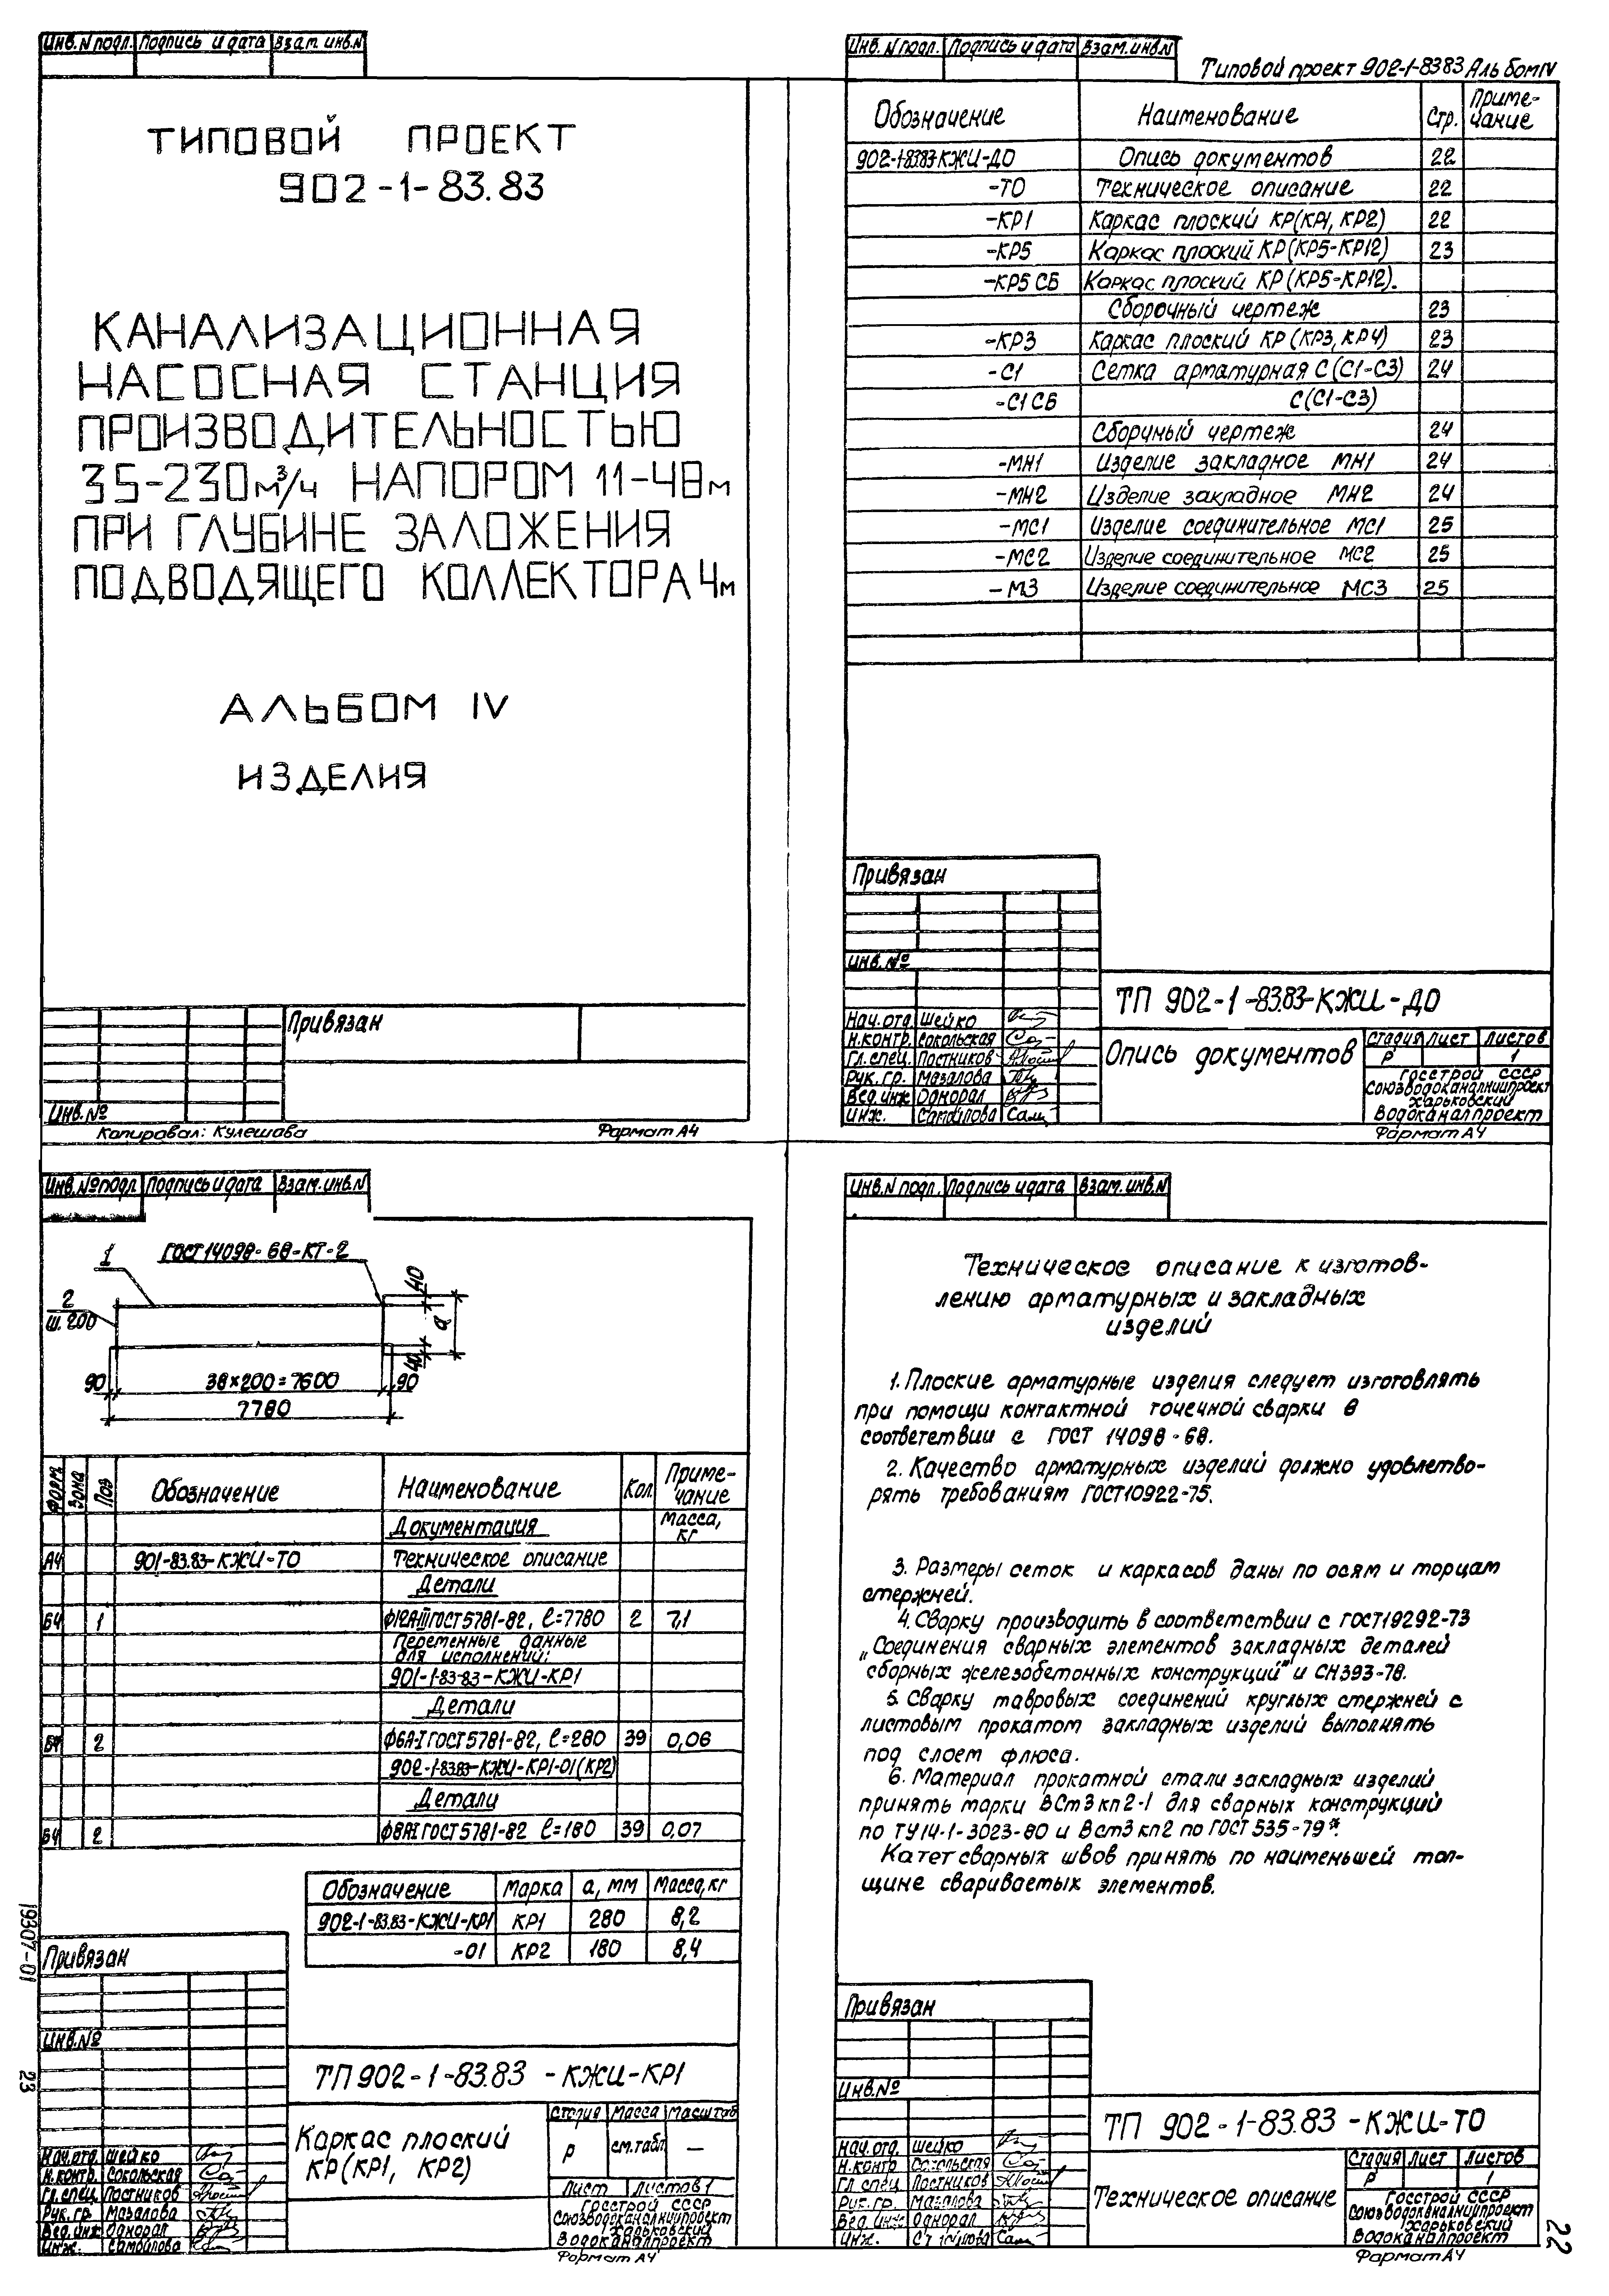 Инв. N подл. Подпись и дата Взам. инв. N
ТИПОВОЙ ПРОЕКТ
902-1-83.83
КАНАЛИЗАЦИОННАЯ
НАСОСНАЯ СТАНЦИЯ
ПРОИЗВОДИТЕЛЬНОСТЬЮ
35-230м³/ч НАПОРОМ 11-48м
ПРИ ГЛУБИНЕ ЗАЛОЖЕНИЯ
ПОДВОДЯЩЕГО КОЛЛЕКТОРА 4м
АЛЬБОМ IV
ИЗДЕЛИЯ
Привязан
Инв. №
Копировал: Кулешова Формат А4
Инв. N подл. Подпись и дата Взам. инв. N
Типовой проект 902-1-8383 Альбом IV
Обозначение Наименование Стр. Приме-
чание
902-1-8383-КЖИ-ДО Опись документов 22
-ТО Техническое описание 22
-КР1 Каркас плоский КР(КР1, КР2) 22
-КР5 Каркас плоский КР(КР5-КР12) 23
-КР5 СБ Каркас плоский КР(КР5-КР12).
Сборочный чертеж 23
-КР3 Каркас плоский КР(КР3, КР4) 23
-С1 Сетка арматурная С(С1-С3) 24
-С1 СБ С(С1-С3)
Сборочный чертеж 24
-МН1 Изделие закладное МН1 24
-МН2 Изделие закладное МН2 24
-МС1 Изделие соединительное МС1 25
-МС2 Изделие соединительное МС2 25
-М3 Изделие соединительное МС3 25
Привязан
Инв. №
ТП 902-1-8383-КЖИ-ДО
Нач. отд. Шейко
Н.контр. Сокольская
Гл. спец. Постников
Рук. гр. Мазалова
Вед. инж Однорал
Инж. Самойлова
Опись документов
Стадия Лист Листов
Р 1
Госстрой СССР
Союзводоканалниипроект
Харьковский
Водоканалпроект
Формат А4
Инв. № подл. Подпись и дата Взам. инв. N
1 ГОСТ 14098-68-КТ-2
2
ш. 200
40
а
40
90 38×200=7600 90
7780
Форм. Зона Поз Обозначение Наименование Кол. Приме-
чание
Документация Масса,
кг
А4 901-83.83-КЖИ-ТО Техническое описание
Детали
БЧ 1 ф12АIII ГОСТ 5781-82, ℓ=7780 2 7,1
Переменные данные
для исполнений:
901-1-83-83-КЖИ-КР1
Детали
БЧ 2 ф6АI ГОСТ 5781-82, ℓ=280 39 0,06
902-1-83.83-КЖИ-КР1-01(КР2)
Детали
БЧ 2 ф8АI ГОСТ 5781-82 ℓ=180 39 0,07
Обозначение Марка а, мм Масса, кг
902-1-83.83-КЖИ-КР1 КР1 280 8,2
-01 КР2 180 8,4
Привязан
Инв. №
19307-01
23
ТП 902-1-83.83 -КЖИ-КР1
Каркас плоский
КР(КР1, КР2)
Стадия Масса Масштаб
Р см.табл. —
Лист Листов 1
Нач. отд. Шейко
Н.контр. Сокольская
Гл. спец. Постников
Рук. гр. Мазалова
Вед. инж Однорал
Инж. Самойлова
Госстрой СССР
Союзводоканалниипроект
Харьковский
Водоканалпроект
Формат А4
Инв. N подл. Подпись и дата Взам. инв. N
Техническое описание к изготов-
лению арматурных и закладных
изделий
1. Плоские арматурные изделия следует изготовлять
при помощи контактной точечной сварки в
соответствии с ГОСТ 14098-68.
2. Качество арматурных изделий должно удовлетво-
рять требованиям ГОСТ 10922-75.
3. Размеры сеток и каркасов даны по осям и торцам
стержней.
4. Сварку производить в соответствии с ГОСТ 19292-73
„Соединения сварных элементов закладных деталей
сборных железобетонных конструкций" и СН 393-78.
5. Сварку тавровых соединений круглых стержней с
листовым прокатом закладных изделий выполнять
под слоем флюса.
6. Материал прокатной стали закладных изделий
принять марки ВСт3кп2-1 для сварных конструкций
по ТУ 14-1-3023-80 и Вст3кп2 по ГОСТ 535-79*.
Катет сварных швов принять по наименьшей тол-
щине свариваемых элементов.
Привязан
Инв. №
ТП 902-1-83.83-КЖИ-ТО
Нач. отд. Шейко
Н.контр Сокольская
Гл. спец. Постников
Рук. гр. Мазалова
Вед. инж Однорал
Инж.
Техническое описание
Стадия Лист Листов
Р 1
Госстрой СССР
Союзводоканалниипроект
Харьковский
Водоканалпроект
Формат А4
22